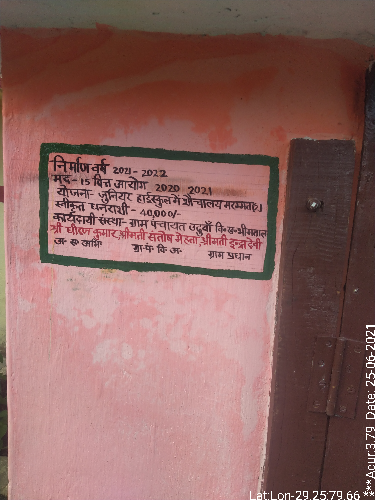 निर्माण वर्ष 2021 - 2022
मद - 15 वित्त आयोग 2020 2021
योजना - जुनियर हाईस्कुल मे शौचालय मरम्मत
स्वीकृत धनराशी - 40,000/-
कार्यदायी संस्था - ग्राम पंचायत उडुवाँ वि०ख० भीमताल
श्री धीरज कुमार, श्रीमती संतोष मेहता, श्रीमती इन्द्रा देवी
ग्राम प्रधान
Lat Lon-29.2579,66 ***Acur:3.79 Date: 25-06-2021